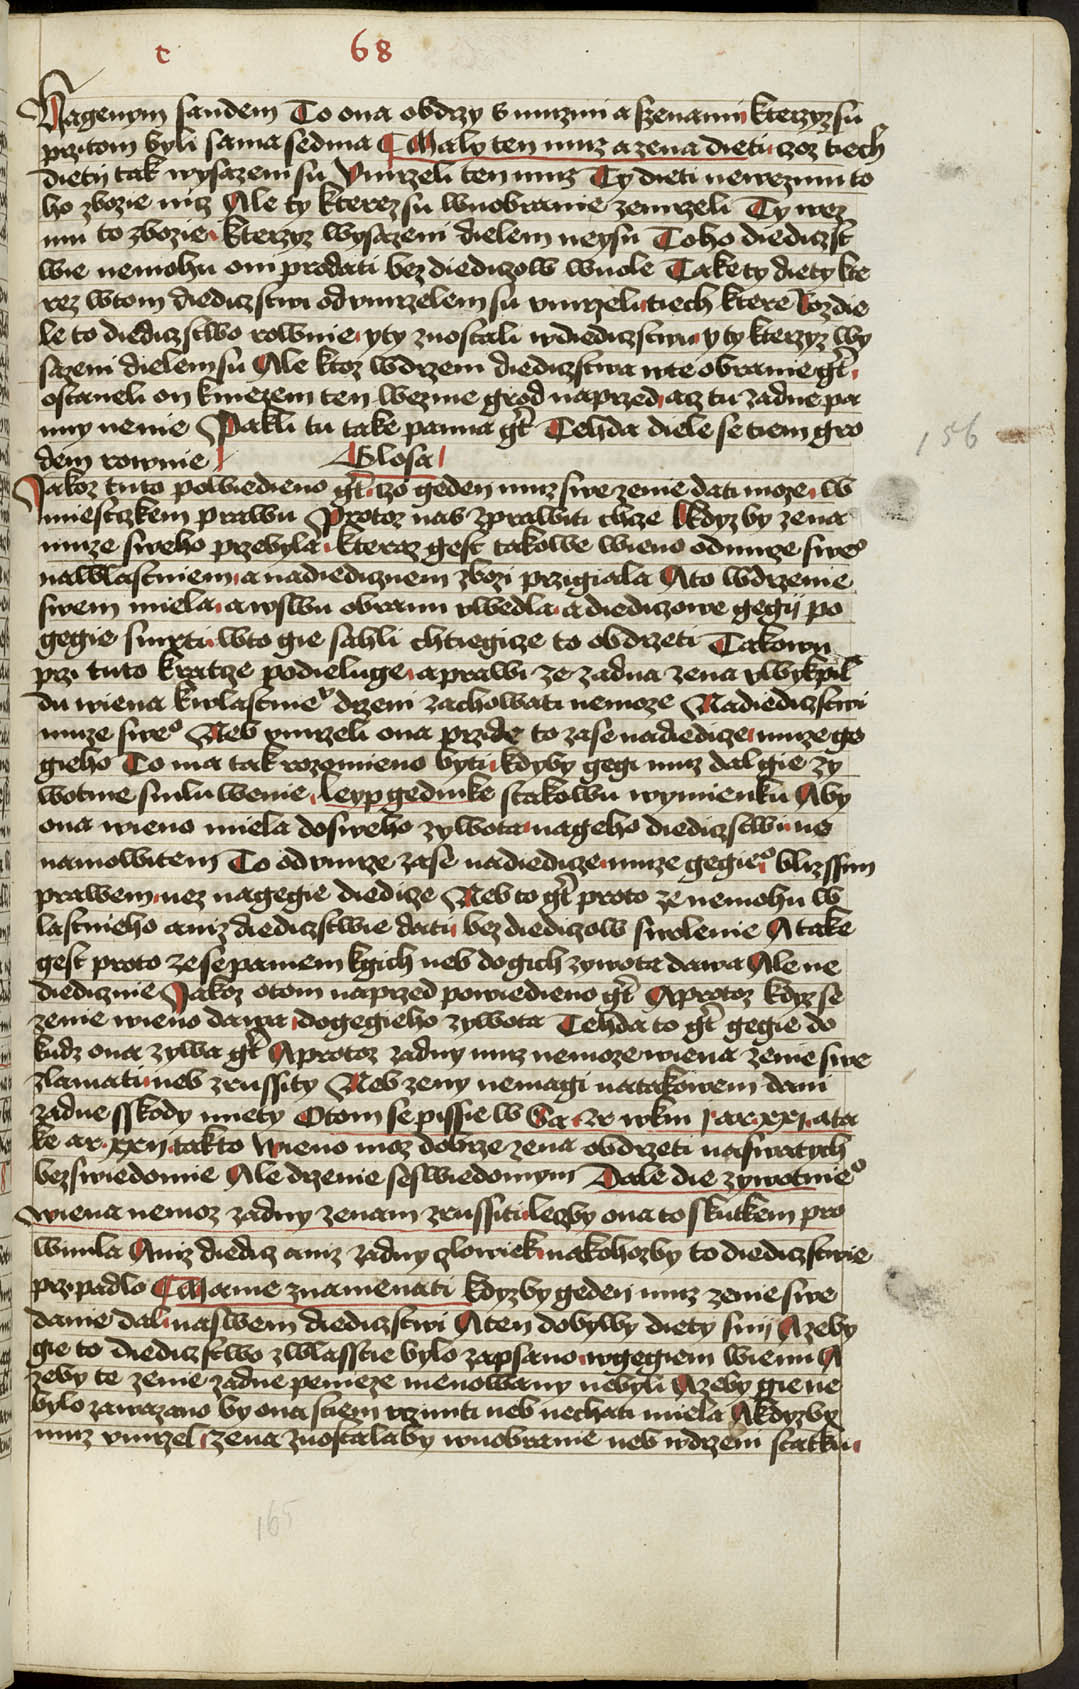 c 68
Nagenym sandem To ona obdrzy s muzmi a szenami kterzyz su
przitom byli sama sedma Maly ten muz a zena dieti izoz tiech
dietij tak wysazeni su Vmrzeli ten muz Ty dieti newezmu to
ho zbozie nicz Ale ty kterez su wuobranie zemrzeli Ty wez
mu to zbozie kterzyz wysazeni dielem neysu Toho diediczst
wie nemohu oni prodati bez diediczow wuole Take ty diety kte
rez wtom diediczstwi odvmrzelem su vmrzeli tiech ktere Rozdie
le to diediczstwo rownie yty zuostali wdiediczstwi y ty kterzyz wy
sazeni dielem su Ale ktoz wdrzeni diediczstwa wte obranie gt
ostaneli on knezem ten wezme grod naprzed acz tu zadne pa
nny nenie Pakli tu take panna gt Tehda diele se tiem gro
dem rownie Glosa
Jakoz tuto powiedieno gt izo geden muz swe zenie dati moze w
miesczkem prawu Protoz nas zprawiti chcze kdyz by zena
muze sweho przebyla kteraz gest takowe wieno od muze sweo
nawlastniem a nadiedicznem zbozi przigiala Ato wdrzenie
swem miela awswu obranu vwedla a diediczowe gegij po
gegie smrti wto gie sahli chtiegicze to obdrzeti Takowu
przi tuto kratcze podieluge a prawi ze zadna zena vwykpil
du wiena kwlastnie drzeni zachowati nemoze Nadiediczstwi
muze sweo Neb vmrzeli ona przide to zase nadiedicze muze ge
gieho To ma tak rozomieno byti kdyby gegi muz dal gie zy
wotnie smluwenie leyp gedinke stakowu wymienku Aby
ona wieno miela dosweho zywota nageho diediczstwi ne
namowitem To odvmrze zase nadiedicze muze gegieo blizssim
prawem nez nagegie diedicze Neb to gt proto ze nemohu w
lastnieho aniz diediczstwie dati bez diediczow swolenie A take
gest proto ze se paniem kgich neb dogich zywota dawa Ale ne
diedicznie Jakoz otom naprzed powiedieno gt Aprotoz kdyz se
zenie wieno dawa dogegieho zywota Tehda to gt gegie do
kudz ona zywa gt Aprotoz zadny muz nemoze wiena zenie swe
zlamati neb zrussity Neb zeny nemagi natakowem dani
zadne sskody miety Otom se pissie w Sa ze wkni j ar xxj ata
ke ar xxij takto Wieno moz dobrze zena obdrzeti naswatych
bez swiedomie Ale drzenie seswiedomym Dale die zywotnieo
wiena nemoz zadny zenam zrussiti leczby ona to skutkem pro
winila Aniz diedicz aniz zadny czlowiek nakohozby to diediczstwie
przipadlo Mame znamenati kdyz by geden muz zenie swe
danie dal naswem diediczstwi Aten dobywy diety smij Azeby
gie to diediczstwo zwlasstie bylo zapsano wgegiem wienu A
zeby te zenie zadne penieze menowany nebyli Azeby gie ne
bylo zawazano by ona stiem vczinti neb nechati miela Akdyzby
muz vmrzel zena zuostalaby wuobranie neb wdrzeni statku
156
165